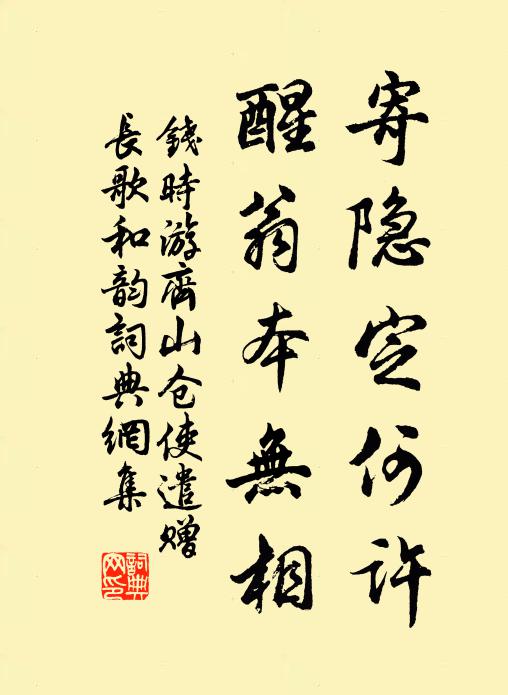 寄隐定何许
醒翁本無相
錢時游齊山仓使遣赠
長歌和韵詞典網集
詞典
网印